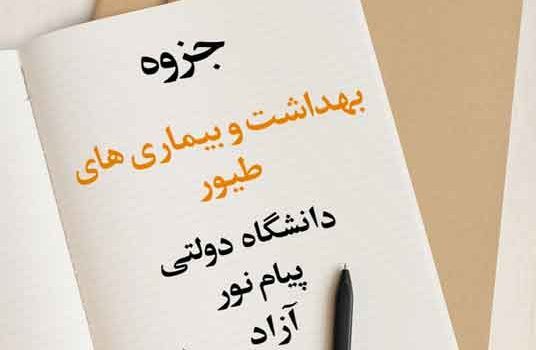 جزوه
بهداشت و بیماری های
طیور
دانشگاه دولتی
پیام نور
آزاد